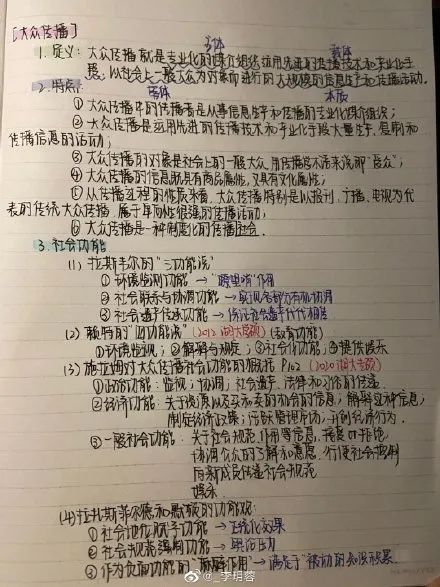 [大众传播]
主体 载体
1. 定义: 大众传播就是专业化的媒介组织运用先进的传播技术和产业化手
段, 以社会上一般大众为对象而进行的大规模的信息生产和传播活动.
2. 特点: 客体 本质
① 大众传播中的传播者是从事信息生产和传播的专业化媒介组织;
② 大众传播是运用先进的传播技术和产业化手段大量生产、复制和
传播信息的活动;
③ 大众传播的对象是社会上的一般大众, 用传播学术语来说即“受众”;
④ 大众传播的信息既具有商品属性, 又具有文化属性;
⑤ 从传播过程的性质来看, 大众传播特别是以报刊、广播、电视为代
表的传统大众传播, 属于单向性很强的传播活动;
⑥ 大众传播是一种制度化的传播
3. 社会功能
(1) 拉斯韦尔的“三功能说”
① 环境监测功能 → “瞭望哨”作用
② 社会联系与协调功能 → 实现各部分有机协调
③ 社会遗产传承功能 → 保证社会遗产代代相传
(2) 赖特的“四功能说” (2012 (教育功能)
① 环境监视; ② 解释与规定; ③ 社会化功能; ④ 提供娱乐
(3) 施拉姆对大众传播社会功能的概括 P102 (2020
① 政治功能: 监视; 协调; 社会遗产、法律和习俗的传递.
② 经济功能: 关于资源以及买和卖的机会的信息; 解释这种信息;
制定经济政策; 活跃管理市场; 开创经济行为.
③ 一般社会功能: 关于社会规范、作用等信息, 接受or拒绝
协调公众的了解和意愿, 行使社会控制
向新成员传递社会规范
娱乐
(4) 拉扎斯菲尔德和默顿的功能观:
① 社会地位赋予功能 → 正统化效果
② 社会规范强制功能 → 舆论压力
③ 作为负面功能的“麻醉作用” → 满足于“被动的知识积累
@_李玥蓉